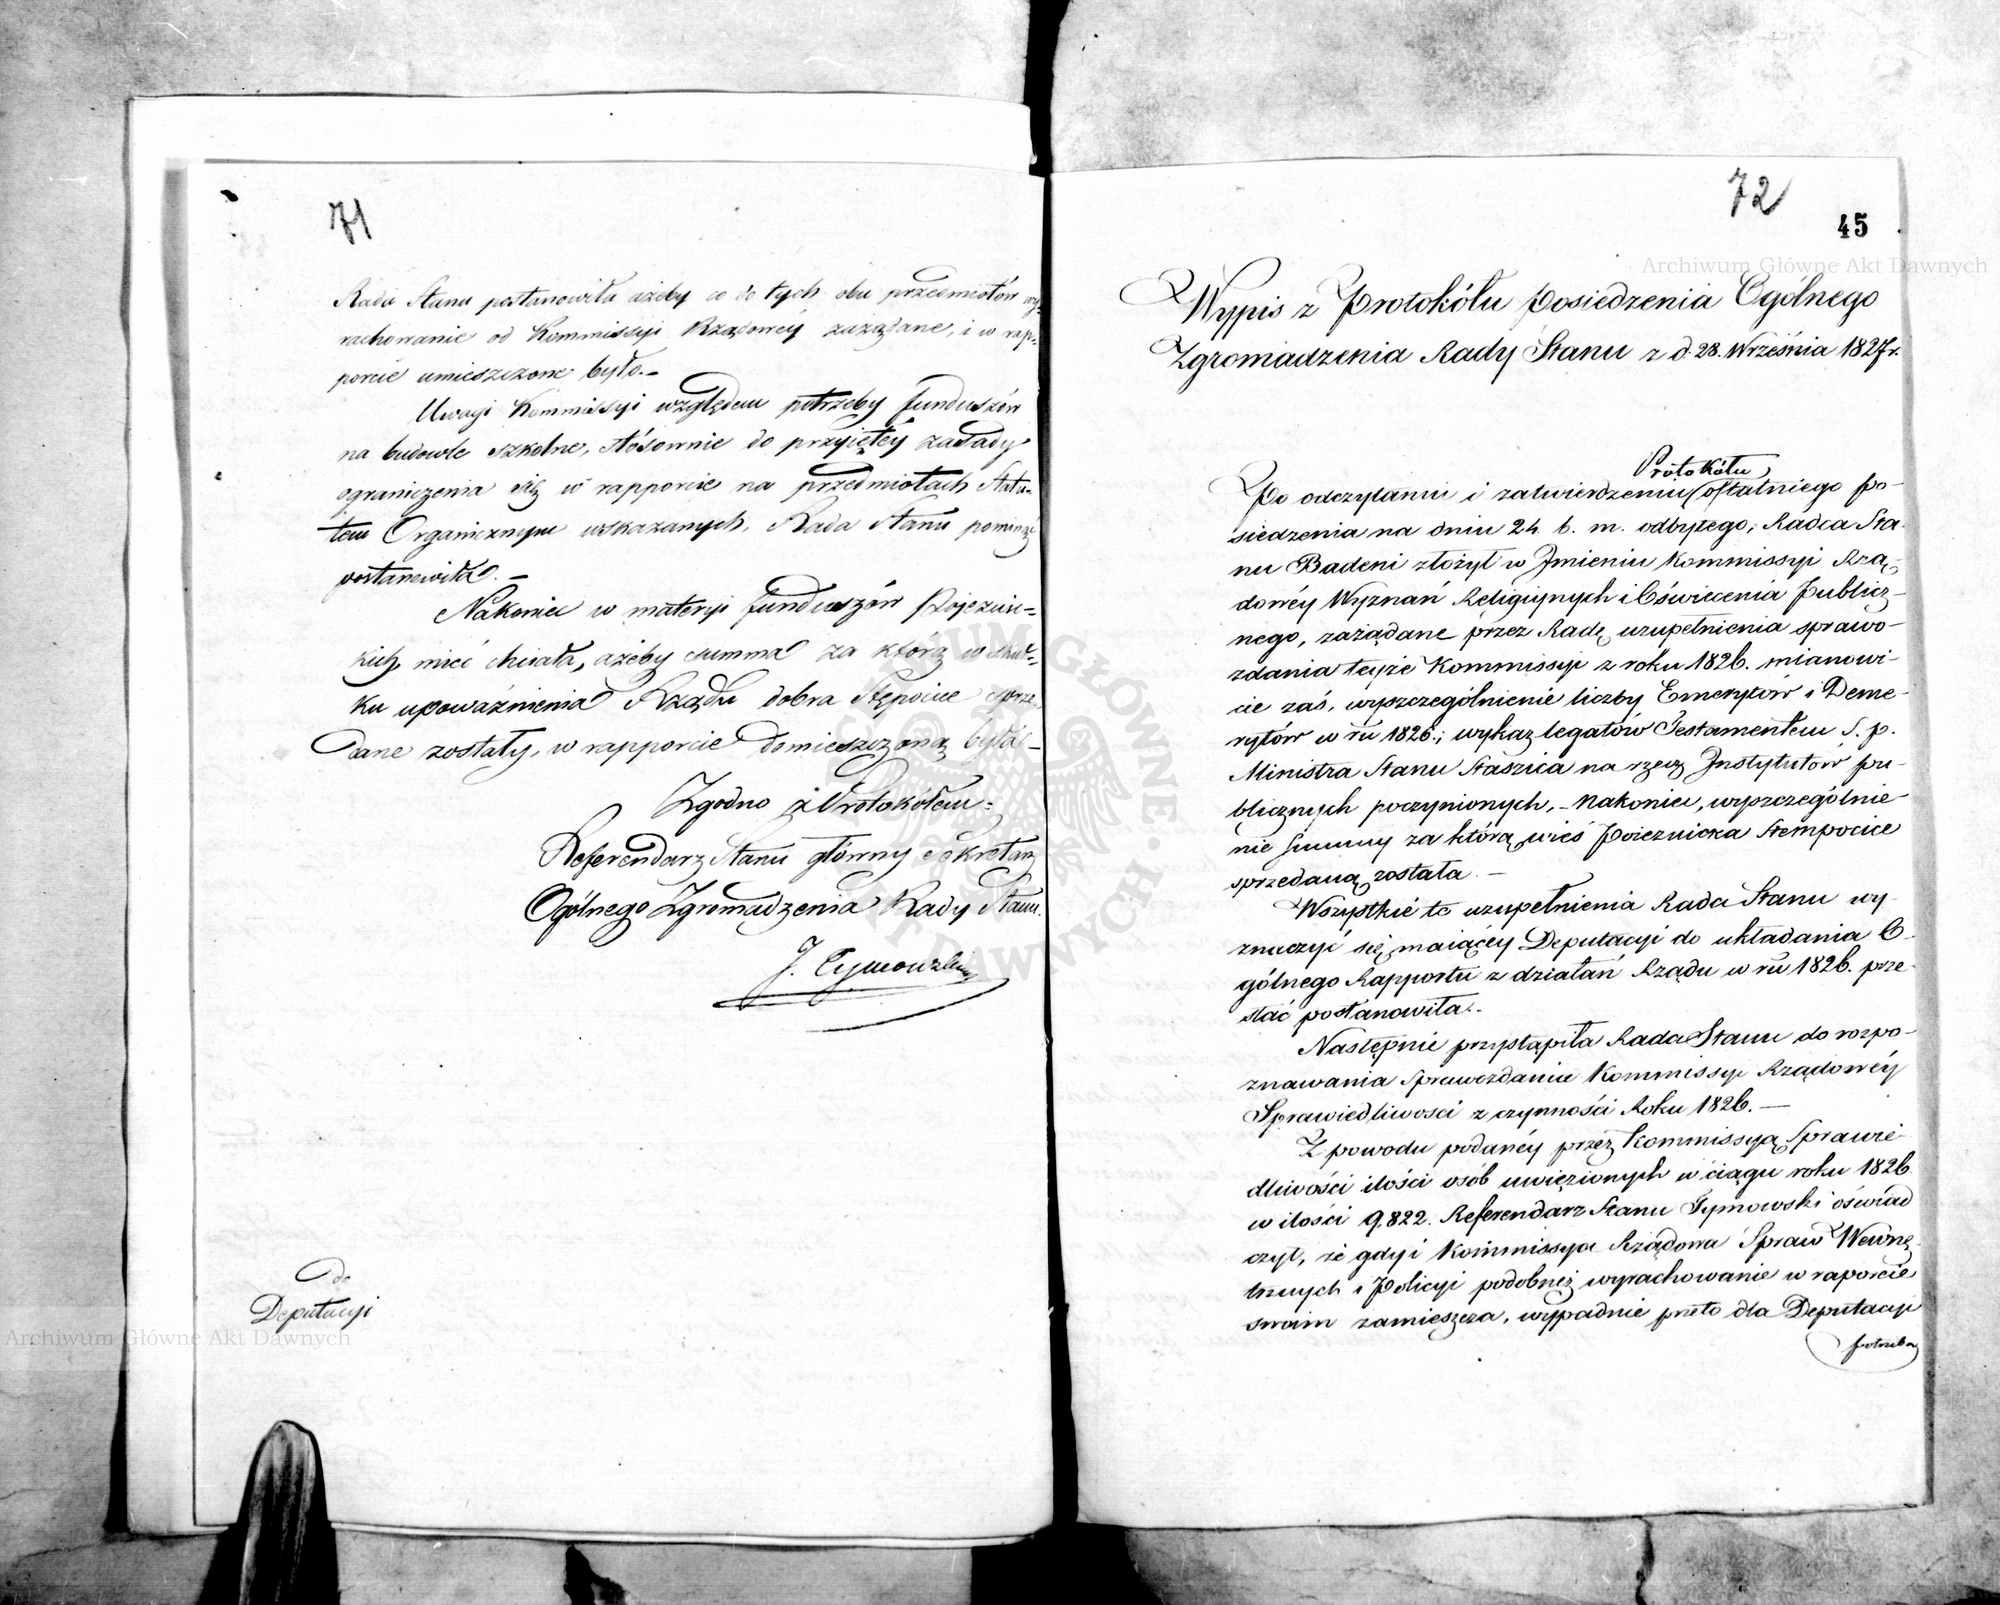 71
Rada Stanu postanowiła ażeby co do tych obu przedmiotów wy-
rachowanie od Kommissyi Rządowéy zażądane, i w rap-
porcie umieszczone było.-
Uwagi Kommissyi względem potrzeby funduszów
na budowle szkolne, stósownie do przyiętéy zasady
ograniczenia się w rapporcie na przedmiotach Statu-
tem Organicznym wskazanych, Rada Stanu pominąć
postanowiła. -
Nakoniec w materyi funduszów Pojezuic-
kich, mieć chciała, ażeby summa za którą w skut-
ku upoważnienia Rządu dobra Stępocice sprze-
dane zostały, w rapporcie domieszczoną była -
Zgodno z Protokółem:
Referendarz Stanu główny Sekretarz
Ogólnego Zgromadzenia Rady Stanu.
J. Tymowski
do
Deputacyi
72
45
Wypis z Protokółu Posiedzenia Ogólnego
Zgromadzenia Rady Stanu z d. 28. Września 1827 r.
Protokółu
Po odczytaniu i zatwierdzeniu ostatniego po-
siedzenia na dniu 24 b. m. odbytego; Radca Sta-
nu Badeni złożył w Jmieniu Kommissyi Rzą-
dowéy Wyznań Religiynych i Oświecenia Publicz-
nego, zażądane przez Radę uzupełnienia sprawo-
zdania teyże Kommissyi z roku 1826. mianowi-
cie zaś, wyszczególnienie liczby Emerytów i Deme-
rytów w ru 1826.; wykaz legatów Testamentem S. p.
Ministra Stanu Staszica na rzecz Jnstytutów pu-
blicznych poczynionych, - nakoniec, wyszczególnie-
nie summy za którą wieś Poieznicka Stempocice
sprzedaną została. -
Wszystkie te uzupełnienia Rada Stanu wy-
znaczyć się maiącéy Deputacyi do układania O-
gólnego Rapportu z działań Rządu w ru 1826. prze-
słać postanowiła.-
Następnie przystąpiła Rada Stanu do rozpo-
znawania sprawozdania Kommissyi Rządowéy
Sprawiedliwości z czynności Roku 1826. -
Z powodu podanéy przez Kommissyą Sprawie-
dliwości ilości osób uwięzionych w ciągu roku 1826
w ilości 9,822. Referendarz Stanu Tymowski oświad
czył, że gdy i Kommissya Rządowa Spraw Wewnę-
trznych i Policyi podobneż wyrachowanie w raporcie
swoim zamieszcza, wypadnie przeto dla Deputacyi
potrzeba
Archiwum Główne Akt Dawnych
Archiwum Główne Akt Dawnych